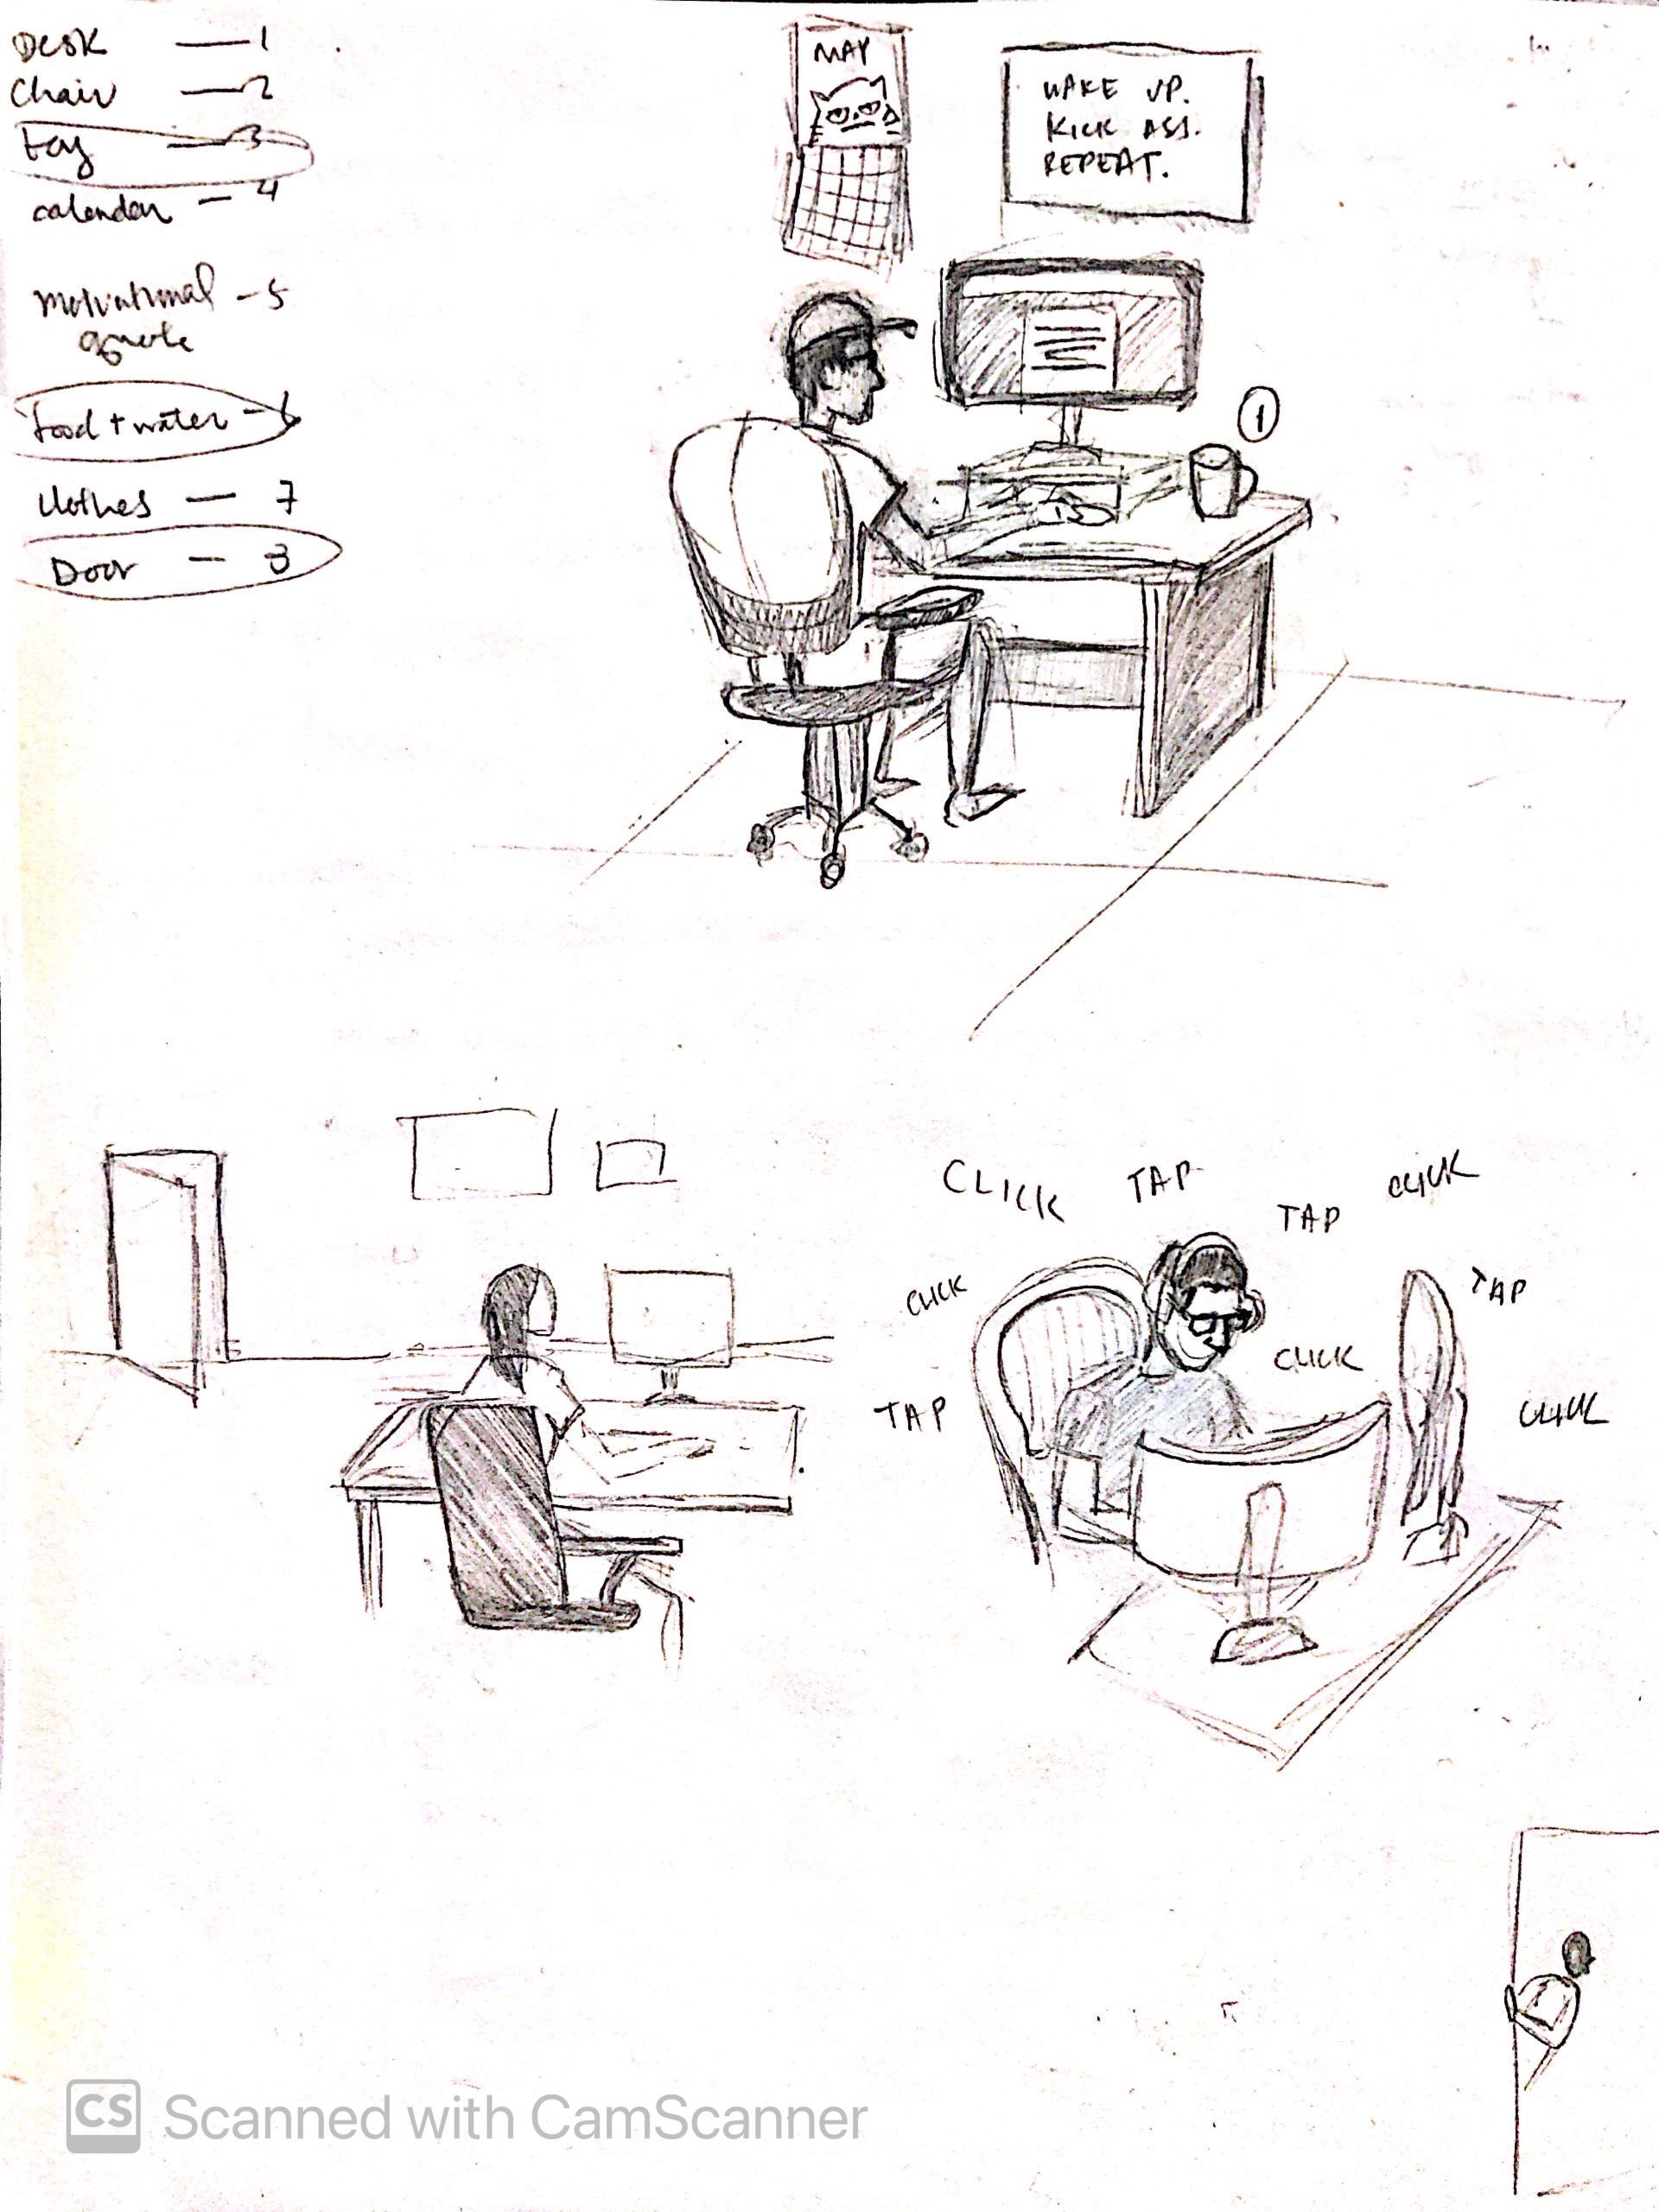 DESK — 1
Chair — 2
toy — 3
calendar — 4
motivational — 5
quote
food + water — 6
clothes — 7
Door — 8
MAY
WAKE UP.
KICK ASS.
REPEAT.
1
CLICK
TAP
TAP
CLICK
CLICK
TAP
CLICK
TAP
CLICK
CS Scanned with CamScanner